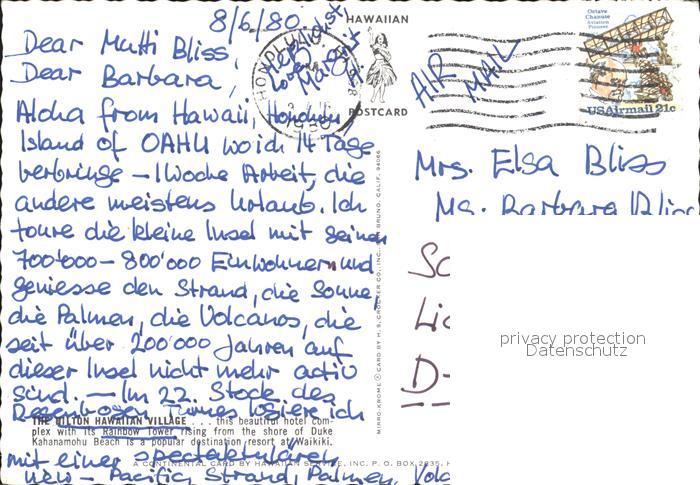 8/6/80.
Dear Mutti Bliss,
Dear Barbara,
Aloha from Hawaii, Honolulu
Island of OAHU wo ich 14 Tage
verbringe – 1 Woche Arbeit, die
andere meistens Urlaub. Ich
toure die kleine Insel mit seinen
700'000 – 800'000 Einwohnern und
geniesse den Strand, die Sonne,
die Palmen, die Volcanos, die
seit über 200'000 Jahren auf
dieser Insel nicht mehr activ
sind. — Im 22. Stock des
Regenbogen Turmes logiere ich
THE HILTON HAWAIIAN VILLAGE . . . this beautiful hotel com-
plex with its Rainbow Tower rising from the shore of Duke
Kahanamohu Beach is a popular destination resort at Waikiki.
mit einer spectakulären
A CONTINENTAL CARD BY HAWAIIAN SERVICE, INC. P. O. BOX 2835, H
view – Pacific, Strand, Palmen, Volc
Herzlichst
Love
Margit
HONOLULU
1980
HAWAIIAN
POSTCARD
MIRRO-KROME ® CARD BY H. S. CROCKER CO., INC., SAN BRUNO, CALIF. 94066
AIR
MAIL
Octave
Chanute
Aviation
Pioneer
USAirmail 21c
Mrs. Elsa Bliss
Ms. Barbara Bliss
Sc
Lic
D-
privacy protection
Datenschutz